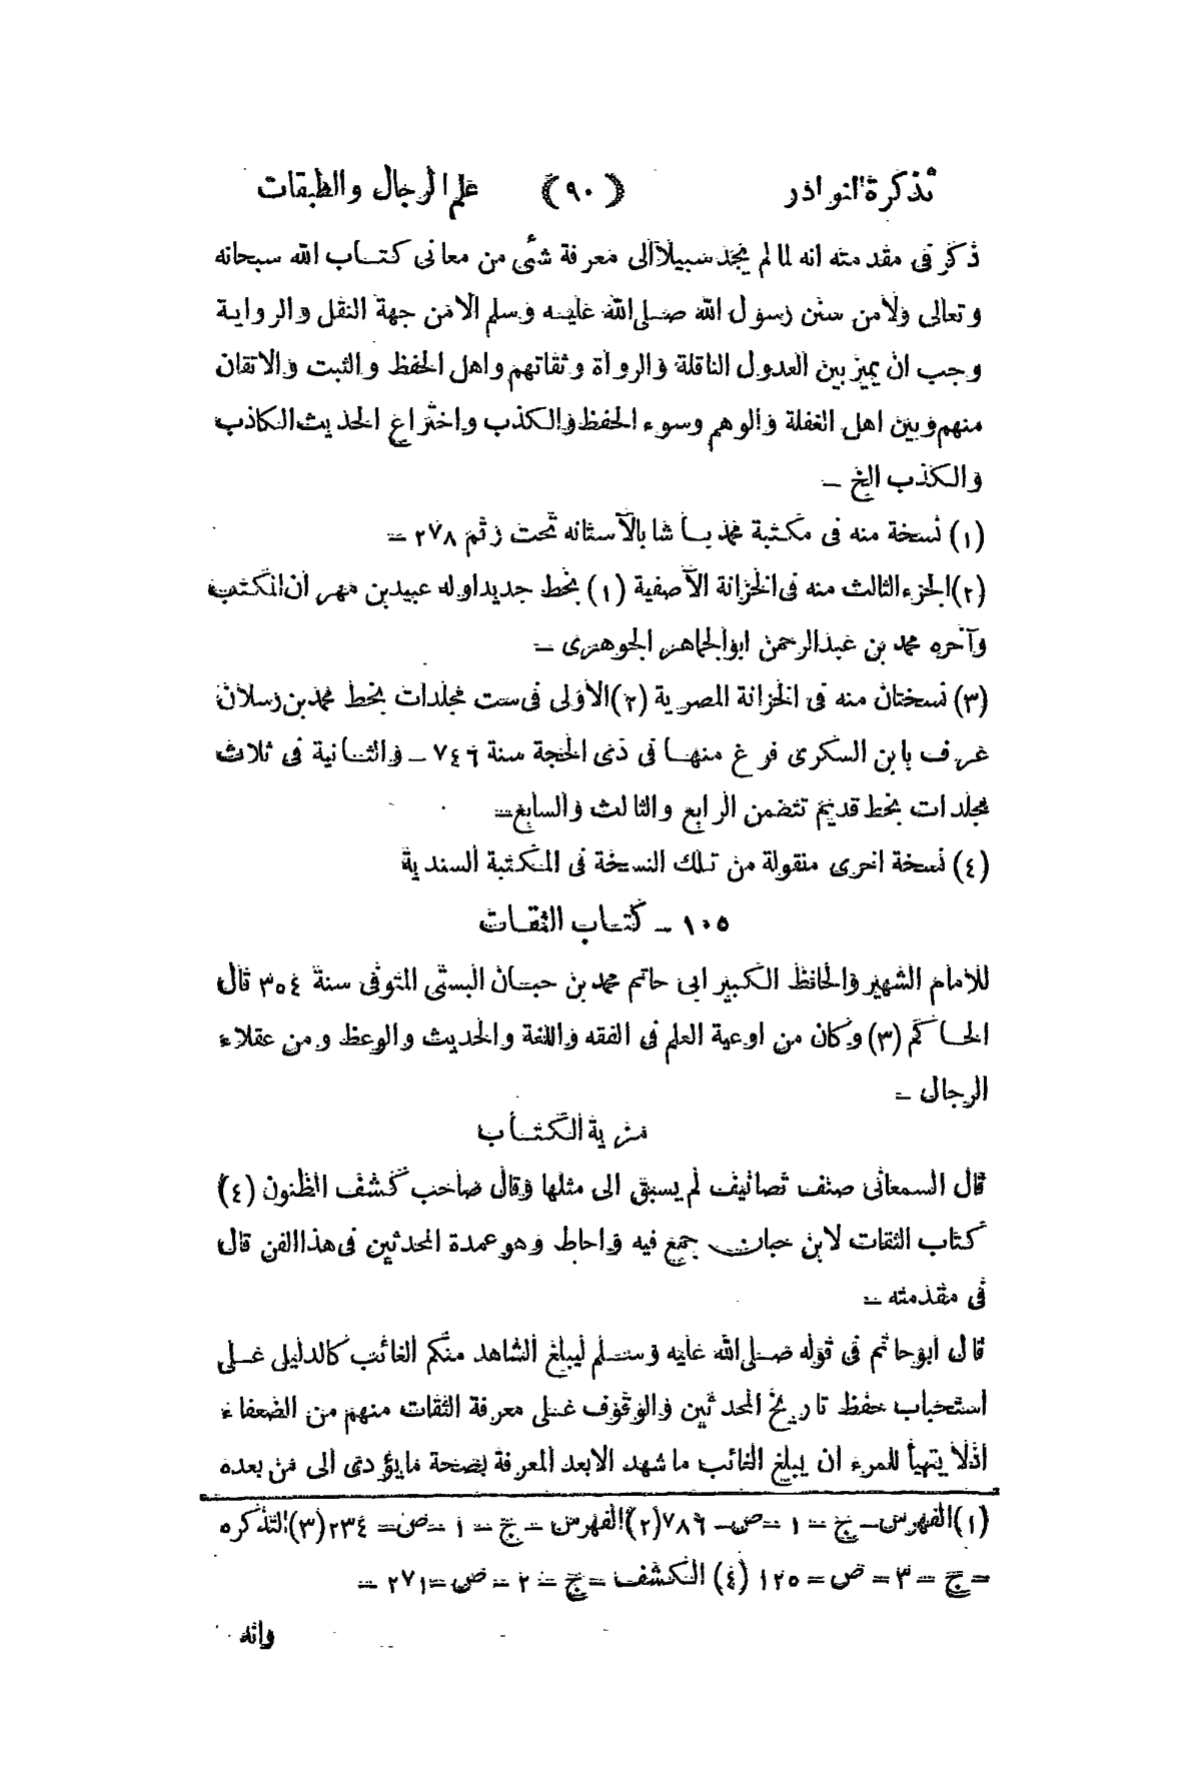 تذكرة النوادر ﴿٩٠﴾ علم الرجال والطبقات
ذكر فى مقدمته انه لما لم يجد سبيلا الى معرفة شئ من معانى كتاب الله سبحانه
وتعالى ولا من سنن رسول الله صلى الله عليه وسلم الا من جهة النقل والرواية
وجب ان يميز بين العدول الناقلة والرواة وثقاتهم واهل الحفظ والثبت والاتقان
منهم وبين اهل الغفلة والوهم وسوء الحفظ والكذب واختراع الحديث الكاذب
والكذب الخ –
(١) نسخة منه فى مكتبة محمد باشا بالآستانه تحت رقم ٢٧٨ –
(٢) الجزء الثالث منه فى الخزانة الآصفية (١) بخط جديد اوله عبيد بن مهران المكتب
وآخره محمد بن عبد الرحمن ابو الجماهر الجوهرى –
(٣) نسختان منه فى الخزانة المصرية (٢) الاولى فى ست مجلدات بخط محمد بن رسلان
عرف بابن السكرى فرغ منها فى ذى الحجة سنة ٧٤٦ – والثانية فى ثلاث
مجلدات بخط قديم تتضمن الرابع والثالث والسابع –
(٤) نسخة اخرى منقولة من تلك النسخة فى المكتبة السندية
١٠٥ – كتاب الثقات
للامام الشهير والحافظ الكبير ابى حاتم محمد بن حبان البستى المتوفى سنة ٣٥٤ قال
الحاكم (٣) وكان من اوعية العلم فى الفقه واللغة والحديث والوعظ ومن عقلاء
الرجال –
مزية الكتاب
قال السمعانى صنف تصانيف لم يسبق الى مثلها وقال صاحب كشف الظنون (٤)
كتاب الثقات لابن حبان جمع فيه واحاط وهو عمدة المحدثين فى هذا الفن قال
فى مقدمته –
قال ابو حاتم فى قوله صلى الله عليه وسلم ليبلغ الشاهد منكم الغائب كالدليل على
استحباب حفظ تاريخ المحدثين والوقوف على معرفة الثقات منهم من الضعفاء
اذ لا يتهيأ للمرء ان يبلغ الغائب ما شهد الا بعد المعرفة بصحة ما يؤدى الى من بعده
(١) الفهرس – ج – ١ – ص – ٧٨٦ (٢) الفهرس – ج – ١ – ص – ٢٣٤ (٣) التذكره
– ج – ٣ – ص – ١٢٥ (٤) الكشف – ج – ٢ – ص – ٢٧١ –
وانه